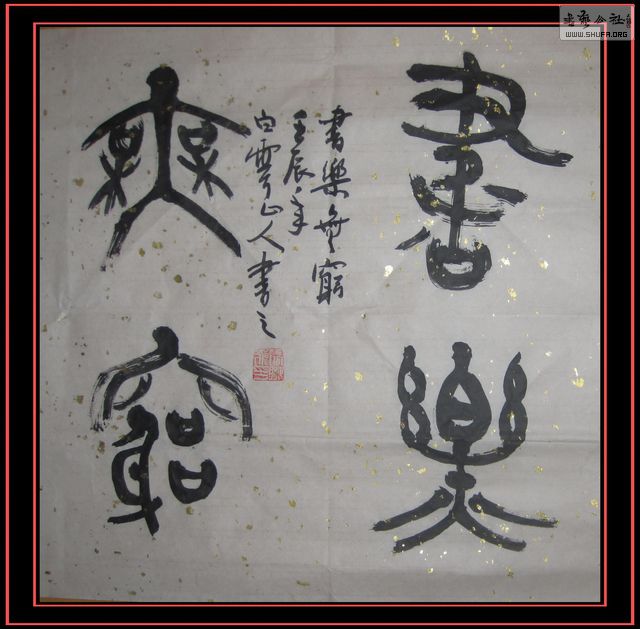 書樂
無窮
書樂無窮
壬辰年
白雲山人書之
書藝公社
WWW.SHUFA.ORG